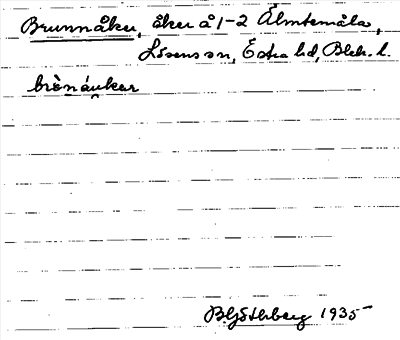 Brunnåker, åker å 1-2 Älmtamåla,
Lösen sn, Östra hd, Blek. l.
brònáuker
B Götherberg 1935